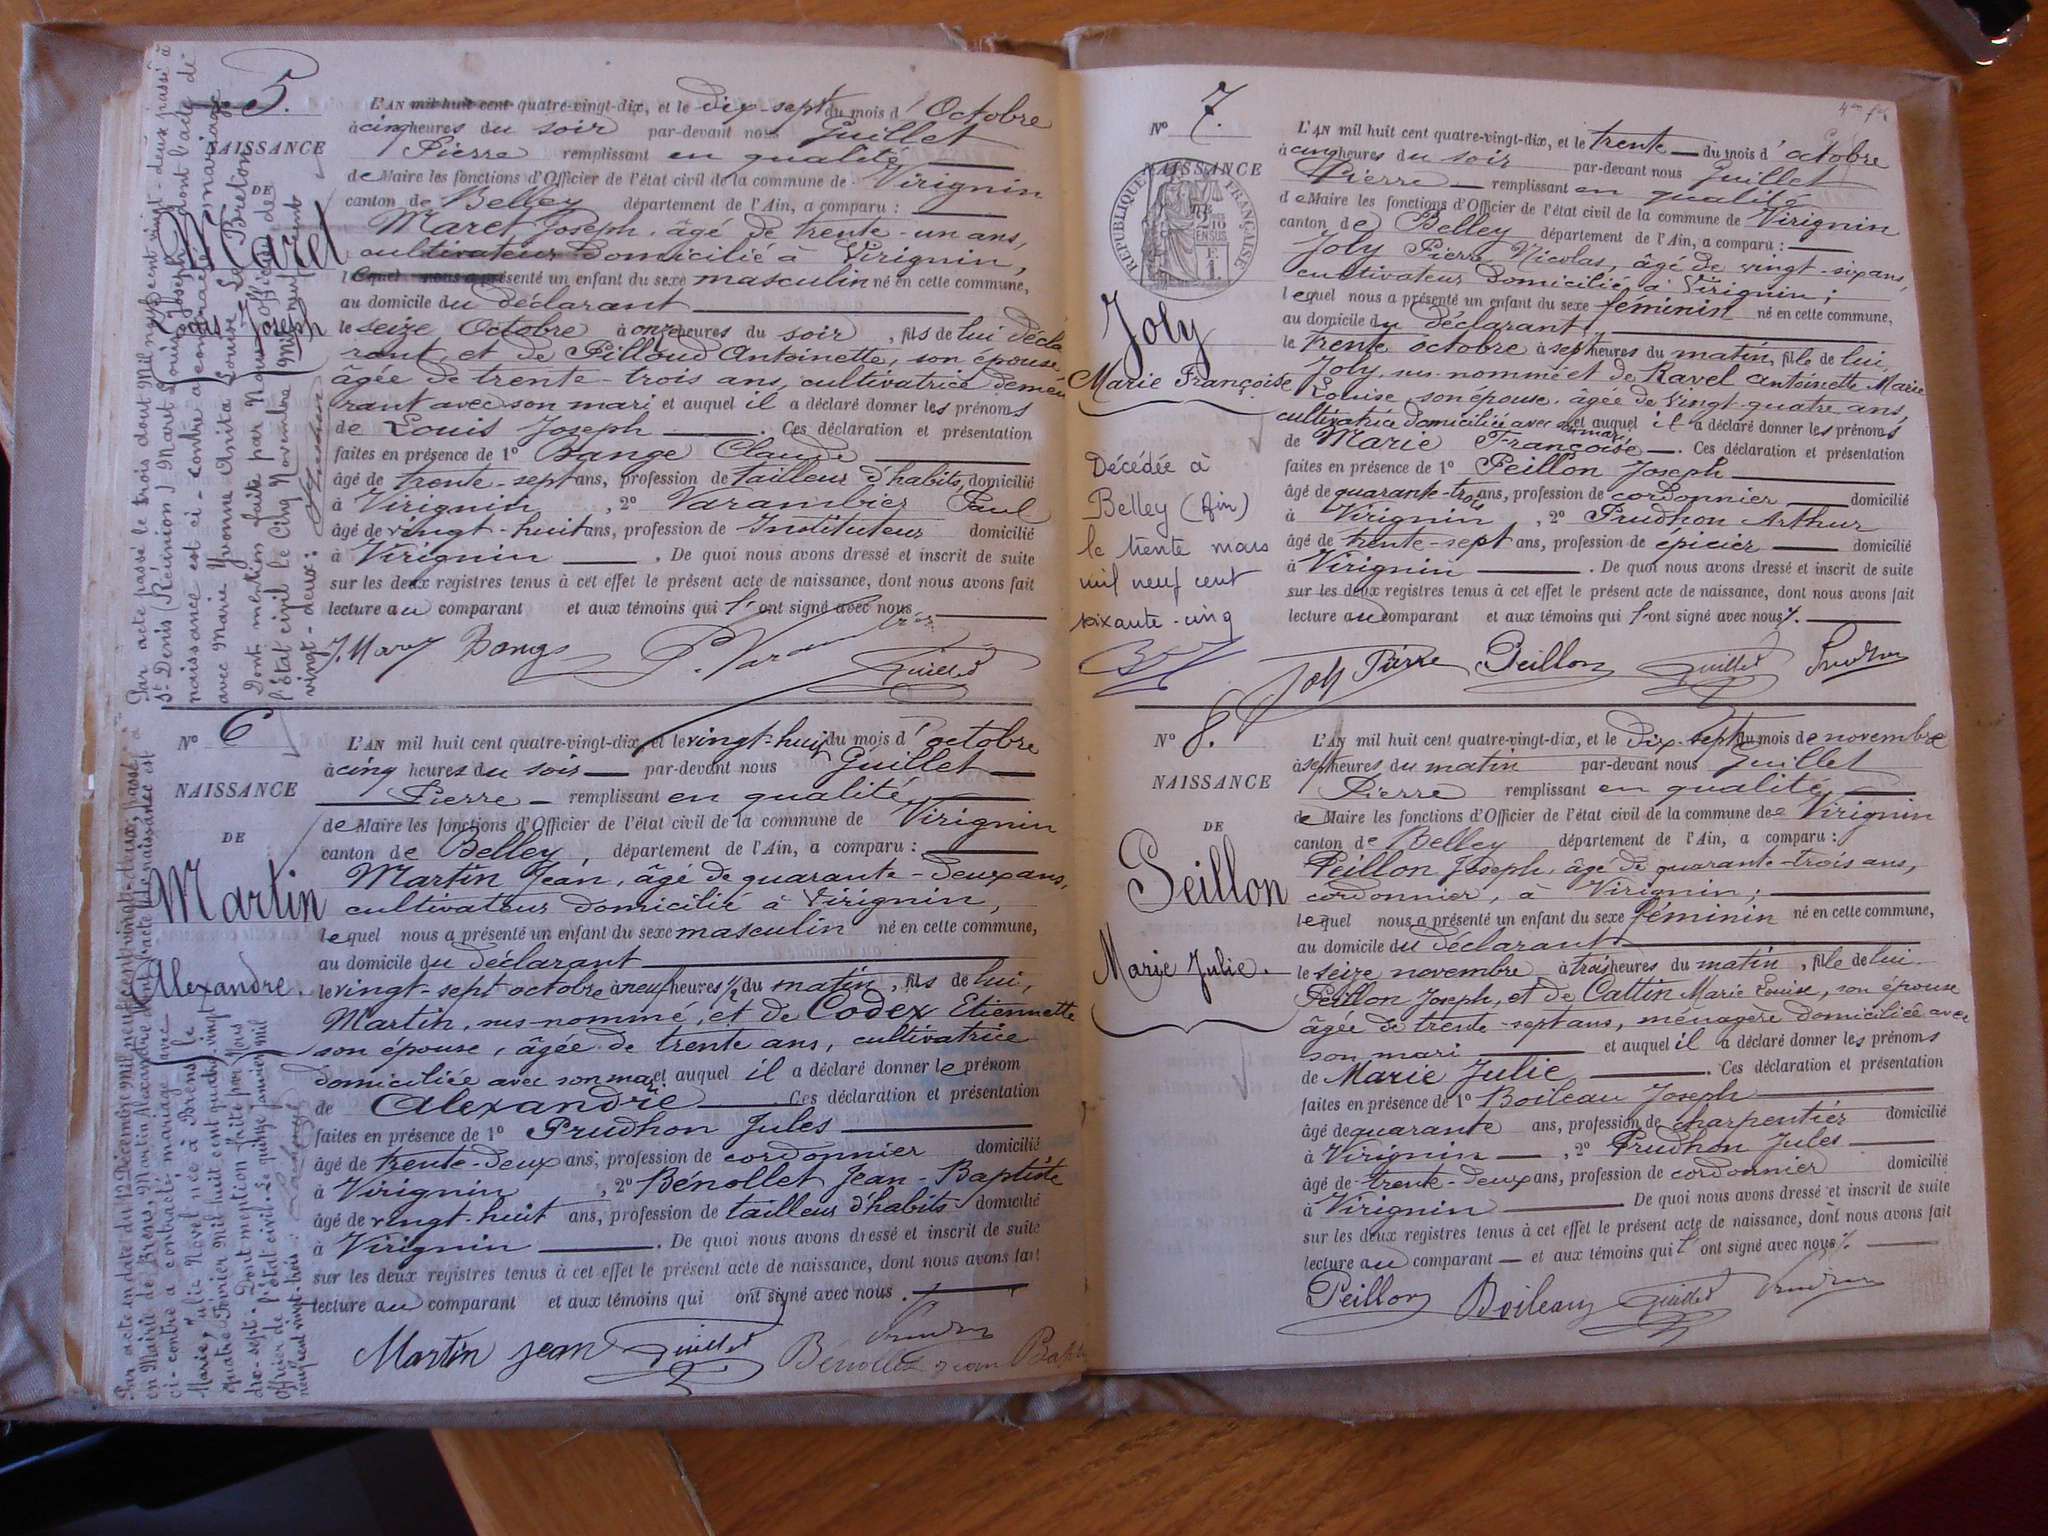 5.
NAISSANCE
DE
Maret
Louis Joseph
L'AN mil huit cent quatre-vingt-dix, et le dix-sept du mois d'Octobre
à cinq heures du soir par-devant nous Guillet
Pierre remplissant en qualité
de Maire les fonctions d'Officier de l'état civil de la commune de Virignin
canton de Belley département de l'Ain, a comparu :
Maret Joseph, âgé de trente-un ans,
cultivateur domicilié à Virignin,
lequel nous a présenté un enfant du sexe masculin né en cette commune,
au domicile du déclarant
le seize Octobre à onze heures du soir, fils de lui décla
rant, et de Pilloud Antoinette, son épouse,
âgée de trente-trois ans, cultivatrice demeu
rant avec son mari et auquel il a déclaré donner les prénoms
de Louis Joseph. Ces déclaration et présentation
faites en présence de 1° Dange Claude
âgé de trente-sept ans, profession de tailleur d'habits, domicilié
à Virignin, 2° Varambier Paul
âgé de vingt-huit ans, profession de Instituteur domicilié
à Virignin. De quoi nous avons dressé et inscrit de suite
sur les deux registres tenus à cet effet le présent acte de naissance, dont nous avons fait
lecture au comparant et aux témoins qui l'ont signé avec nous
Guillet
Par acte passé le trois Août Mil neuf cent vingt-deux passé à
St Denis (Réunion) Maret Louis Joseph dont l'acte de
naissance est ci-contre a contracté mariage
avec Marie Yvonne Anita Louise Le Breton
Dont mention faite par Nous Officier de
l'état civil le Cinq Novembre Mil neuf cent
vingt-deux :
N° 6
NAISSANCE
DE
Martin
Alexandre.
L'AN mil huit cent quatre-vingt-dix, et le vingt-huit du mois d'octobre
à cinq heures du soir par-devant nous Guillet
Pierre remplissant en qualité
de Maire les fonctions d'Officier de l'état civil de la commune de Virignin
canton de Belley, département de l'Ain, a comparu :
Martin Jean, âgé de quarante-deux ans,
cultivateur domicilié à Virignin,
lequel nous a présenté un enfant du sexe masculin né en cette commune,
au domicile du déclarant
le vingt-sept octobre à neuf heures 1/2 du matin, fils de lui,
Martin, sus-nommé, et de Codex Etiennette
son épouse, âgée de trente ans, cultivatrice
domiciliée avec son mari et auquel il a déclaré donner le prénom
de Alexandre. Ces déclaration et présentation
faites en présence de 1° Prudhon Jules
âgé de trente-deux ans, profession de cordonnier domicilié
à Virignin, 2° Bénollet Jean-Baptiste
âgé de vingt-huit ans, profession de tailleur d'habits domicilié
à Virignin. De quoi nous avons dressé et inscrit de suite
sur les deux registres tenus à cet effet le présent acte de naissance, dont nous avons fait
lecture au comparant et aux témoins qui ont signé avec nous.
Martin Jean Guillet Bénollet Jean Bap
Par acte en date du 12 Décembre Mil neuf cent vingt-deux, passé
en Mairie de Brens, Martin Alexandre dont l'acte de naissance est
ci-contre a contracté mariage avec
Marie Julie Novel née à Brens le
quatre Février Mil huit cent quatre vingt
dix-sept. Dont mention faite par Nous
Officier de l'état civil. Le quinze Janvier mil
neuf cent vingt-trois :
N° 7.
NAISSANCE
RÉPUBLIQUE FRANÇAISE
Joly
Marie Françoise
Décédée à
Belley (Ain)
le trente mars
mil neuf cent
soixante-cinq
L'AN mil huit cent quatre-vingt-dix, et le trente du mois d'octobre
à cinq heures du soir par-devant nous Guillet
Pierre remplissant en qualité
de Maire les fonctions d'Officier de l'état civil de la commune de Virignin
canton de Belley département de l'Ain, a comparu :
Joly Pierre Nicolas, âgé de vingt-six ans,
cultivateur domicilié à Virignin ;
lequel nous a présenté un enfant du sexe féminin né en cette commune,
au domicile du déclarant,
le trente octobre à sept heures du matin, fille de lui,
Joly sus-nommé et de Ravel Antoinette Marie
Louise, son épouse, âgée de vingt-quatre ans,
cultivatrice domiciliée avec son mari et auquel il a déclaré donner les prénoms
de Marie Françoise. Ces déclaration et présentation
faites en présence de 1° Peillon Joseph
âgé de quarante-trois ans, profession de cordonnier domicilié
à Virignin, 2° Prudhon Arthur
âgé de trente-sept ans, profession de épicier domicilié
à Virignin. De quoi nous avons dressé et inscrit de suite
sur les deux registres tenus à cet effet le présent acte de naissance, dont nous avons fait
lecture au comparant et aux témoins qui l'ont signé avec nous.
Joly Pierre Peillon Guillet
N° 8.
NAISSANCE
DE
Peillon
Marie Julie.
L'AN mil huit cent quatre-vingt-dix, et le dix-sept du mois de novembre
à sept heures du matin par-devant nous Guillet
Pierre remplissant en qualité
de Maire les fonctions d'Officier de l'état civil de la commune de Virignin
canton de Belley département de l'Ain, a comparu :
Peillon Joseph, âgé de quarante-trois ans,
cordonnier, à Virignin ;
lequel nous a présenté un enfant du sexe féminin né en cette commune,
au domicile du déclarant
le seize novembre à trois heures du matin, fille de lui
Peillon Joseph, et de Cattin Marie Louise, son épouse
âgée de trente-sept ans, ménagère domiciliée avec
son mari et auquel il a déclaré donner les prénoms
de Marie Julie. Ces déclaration et présentation
faites en présence de 1° Boileau Joseph
âgé de quarante ans, profession de charpentier domicilié
à Virignin, 2° Prudhon Jules
âgé de trente-deux ans, profession de cordonnier domicilié
à Virignin. De quoi nous avons dressé et inscrit de suite
sur les deux registres tenus à cet effet le présent acte de naissance, dont nous avons fait
lecture au comparant et aux témoins qui l'ont signé avec nous.
Peillon Boileau Guillet